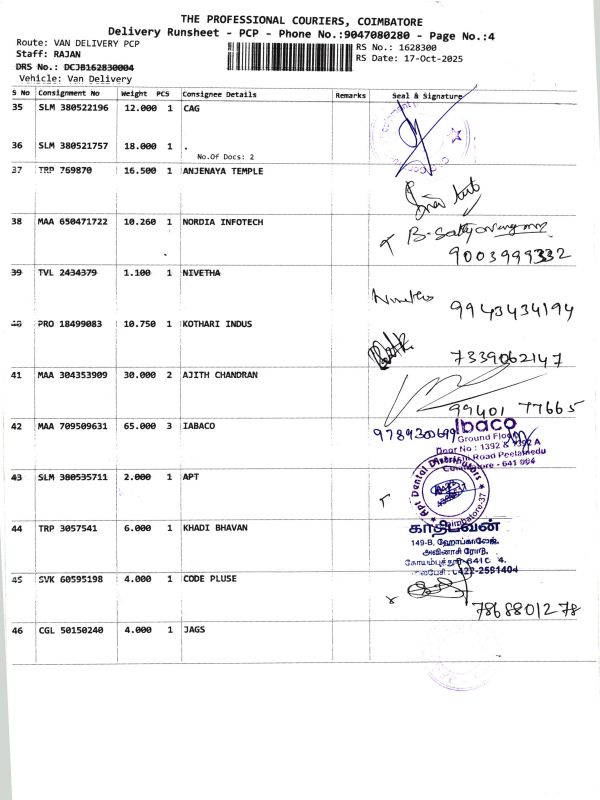 THE PROFESSIONAL COURIERS, COIMBATORE
Delivery Runsheet - PCP - Phone No.:9047080280 - Page No.:4
Route: VAN DELIVERY PCP
RS No.: 1628300
Staff: RAJAN
RS Date: 17-Oct-2025
DRS No.: DCJB162830004
Vehicle: Van Delivery
S No Consignment No Weight PCS Consignee Details Remarks Seal & Signature
35 SLM 380522196 12.000 1 CAG
36 SLM 380521757 18.000 1 .
No.Of Docs: 2
37 TRP 769870 16.500 1 ANJENAYA TEMPLE
38 MAA 650471722 10.260 1 NORDIA INFOTECH
9003999332
39 TVL 2434379 1.100 1 NIVETHA
Nivetha 9943434194
40 PRO 18499083 10.750 1 KOTHARI INDUS
7339062147
41 MAA 304353909 30.000 2 AJITH CHANDRAN
99401 77665
42 MAA 709509631 65.000 3 IABACO
Ibaco
Ground Floor
Door No : 1392 & 1392 A
Road Peelamedu
Coimbatore - 641 004
43 SLM 380535711 2.000 1 APT
Apt Dental Distributors
Coimbatore-37
44 TRP 3057541 6.000 1 KHADI BHAVAN
காதிபவன்
149-B, ஹோப்காலேஜ்,
அவினாசி ரோடு,
கோயம்புத்தூர்-641 4.
0422-2591404
45 SVK 60595198 4.000 1 CODE PLUSE
7868801278
46 CGL 50150240 4.000 1 JAGS